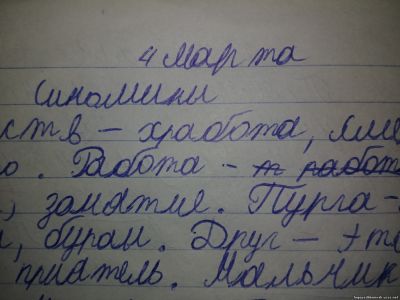 4 марта
Синомини
ств – хработа,
о. Работа – работ
, заматие. Пурга –
, буран. Друг – это
приатель. Мальчик